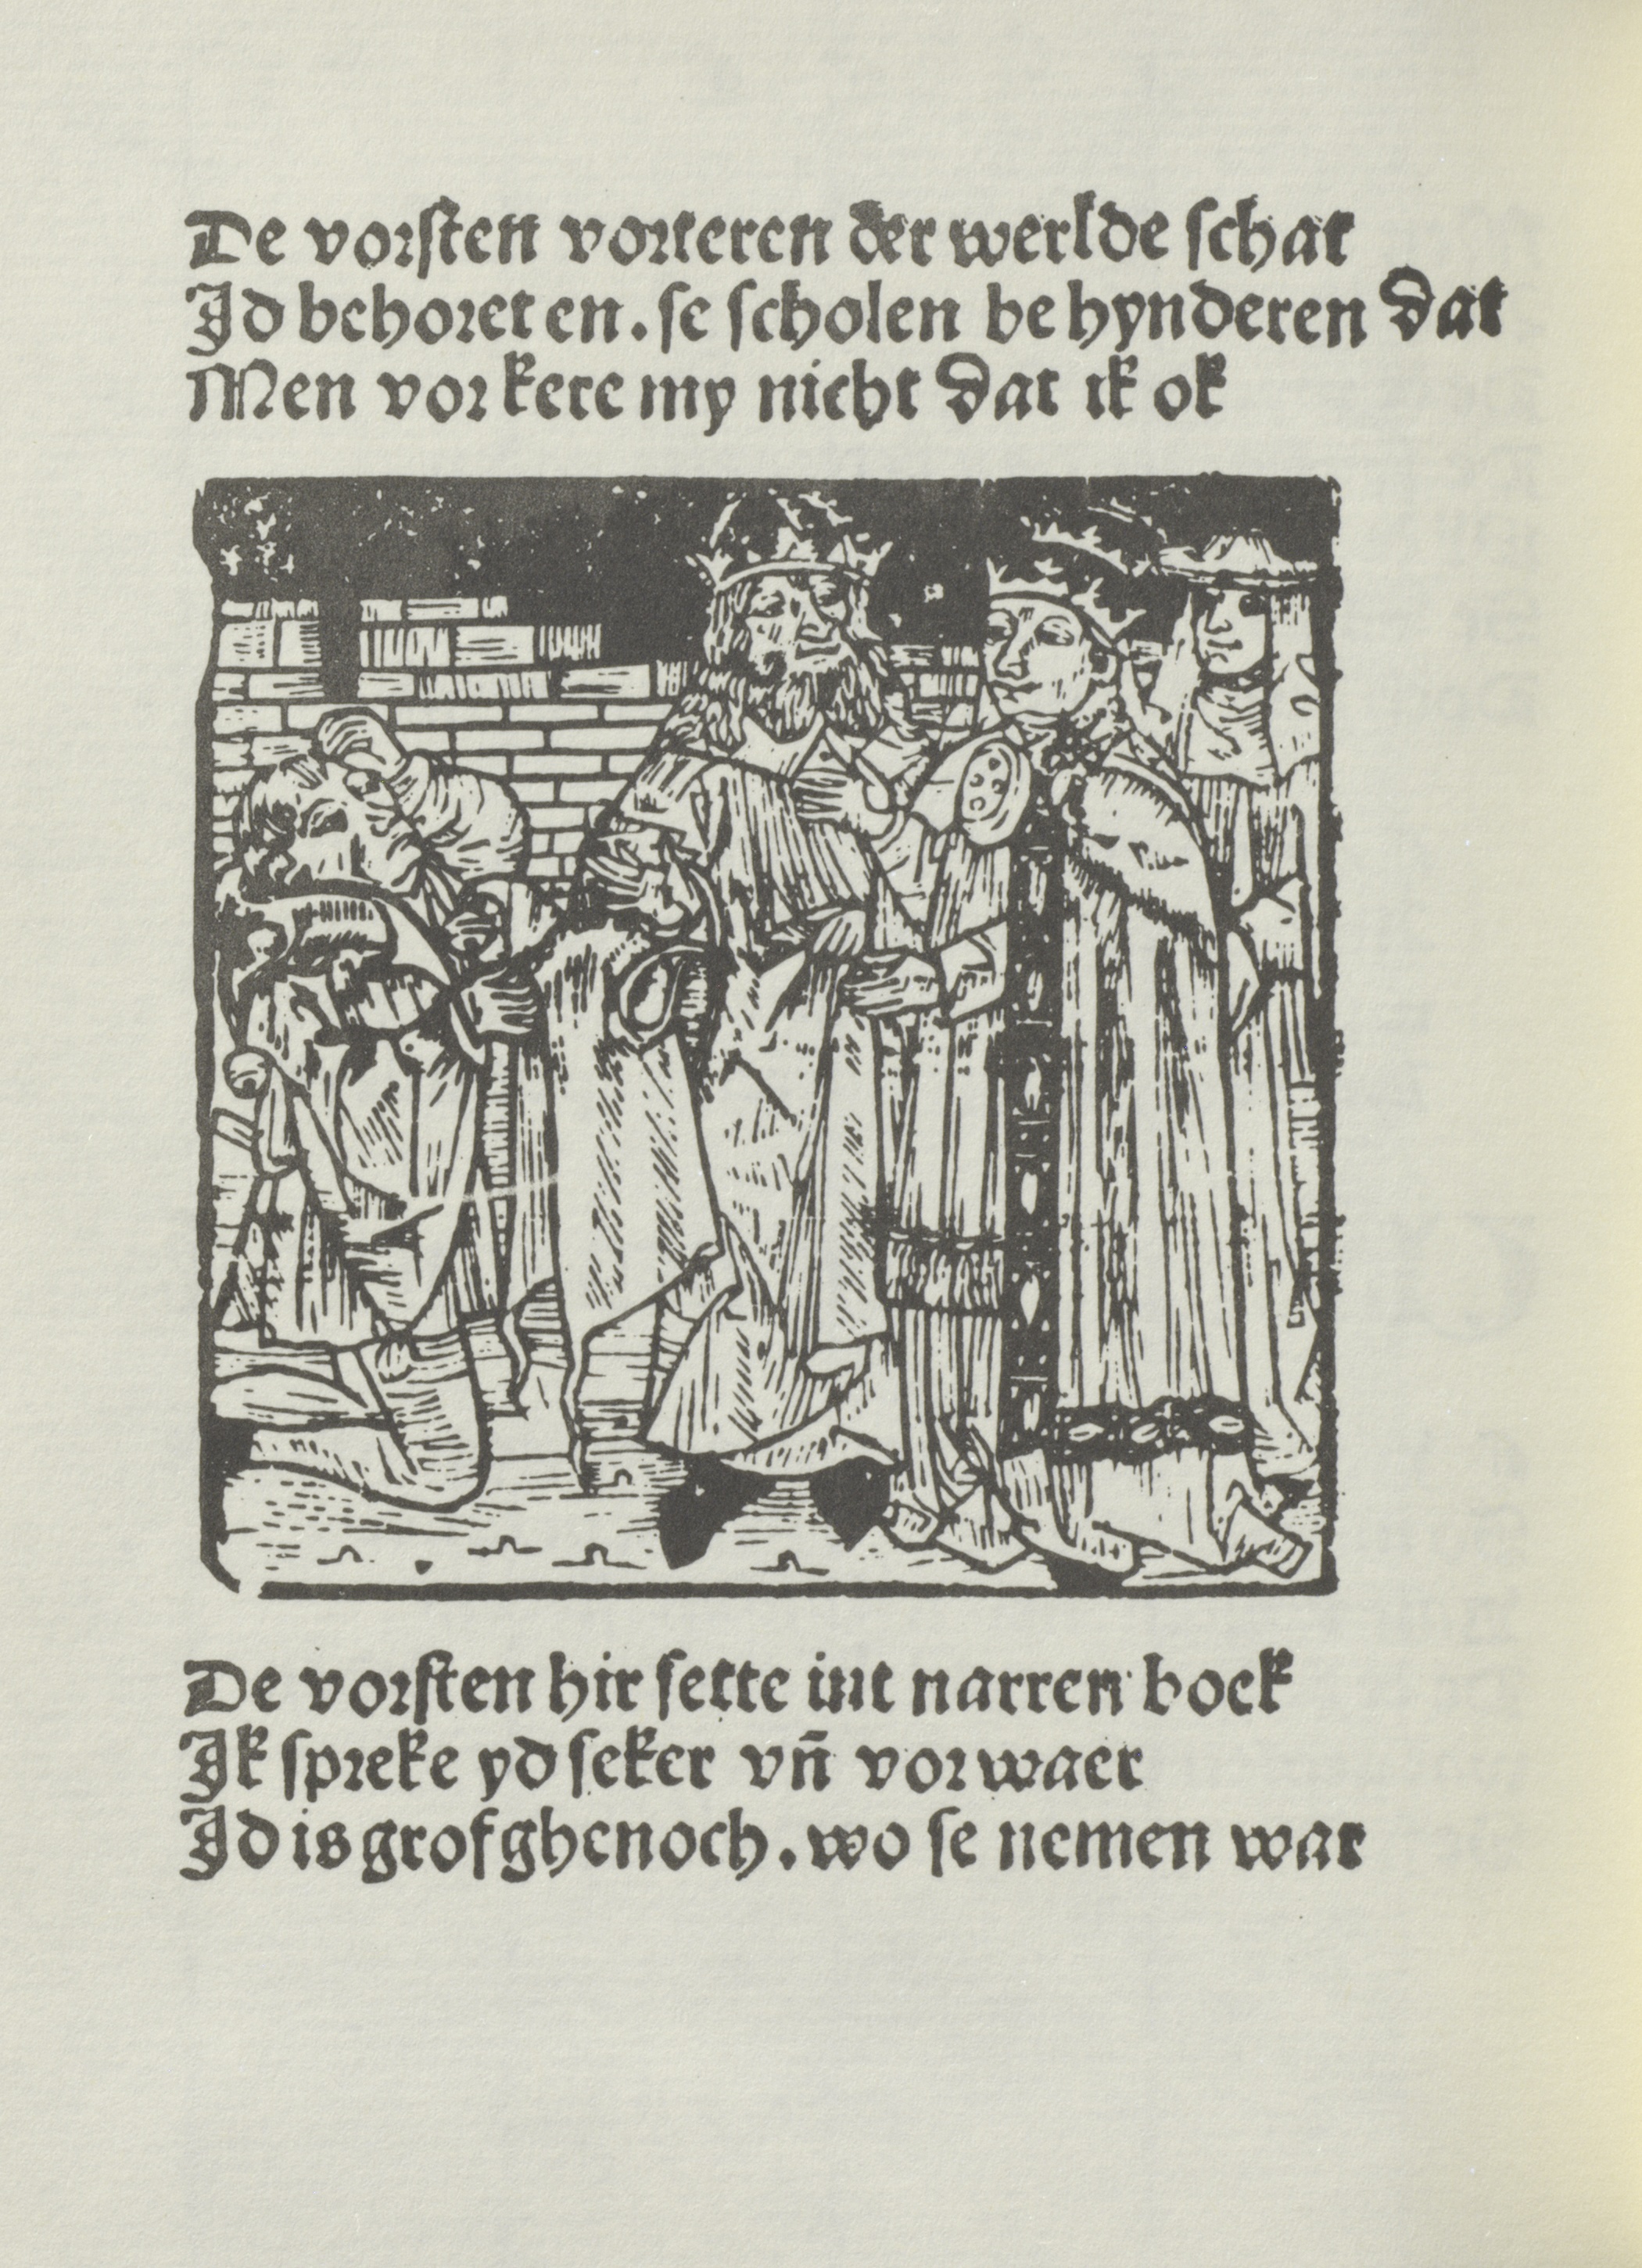 De vorſten vorteren der werlde ſchat
Id behoret en. ſe ſcholen be hynderen dat
Men vor kere my nicht dat ik ok
De vorſten hir ſette int narren boek
Ik ſpreke yd ſeker vn̄ vor waer
Id is grof ghenoch. wo ſe nemen war